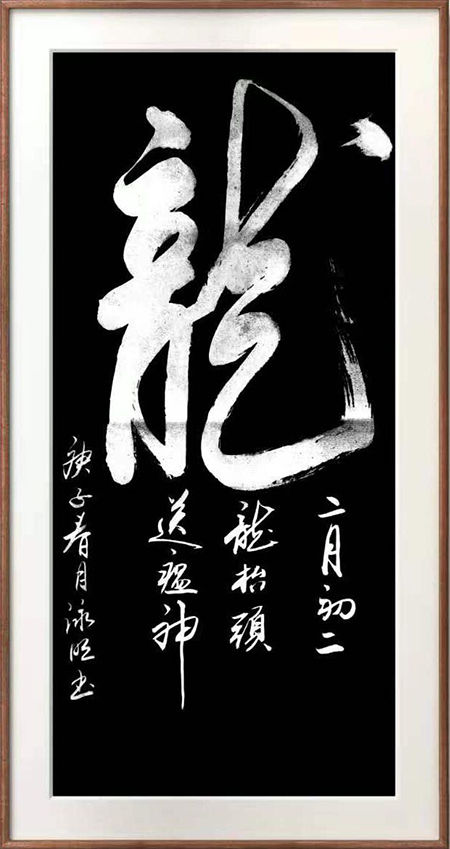 龍
二月初二
龍抬頭
送瘟神
庚子春月泳旺書